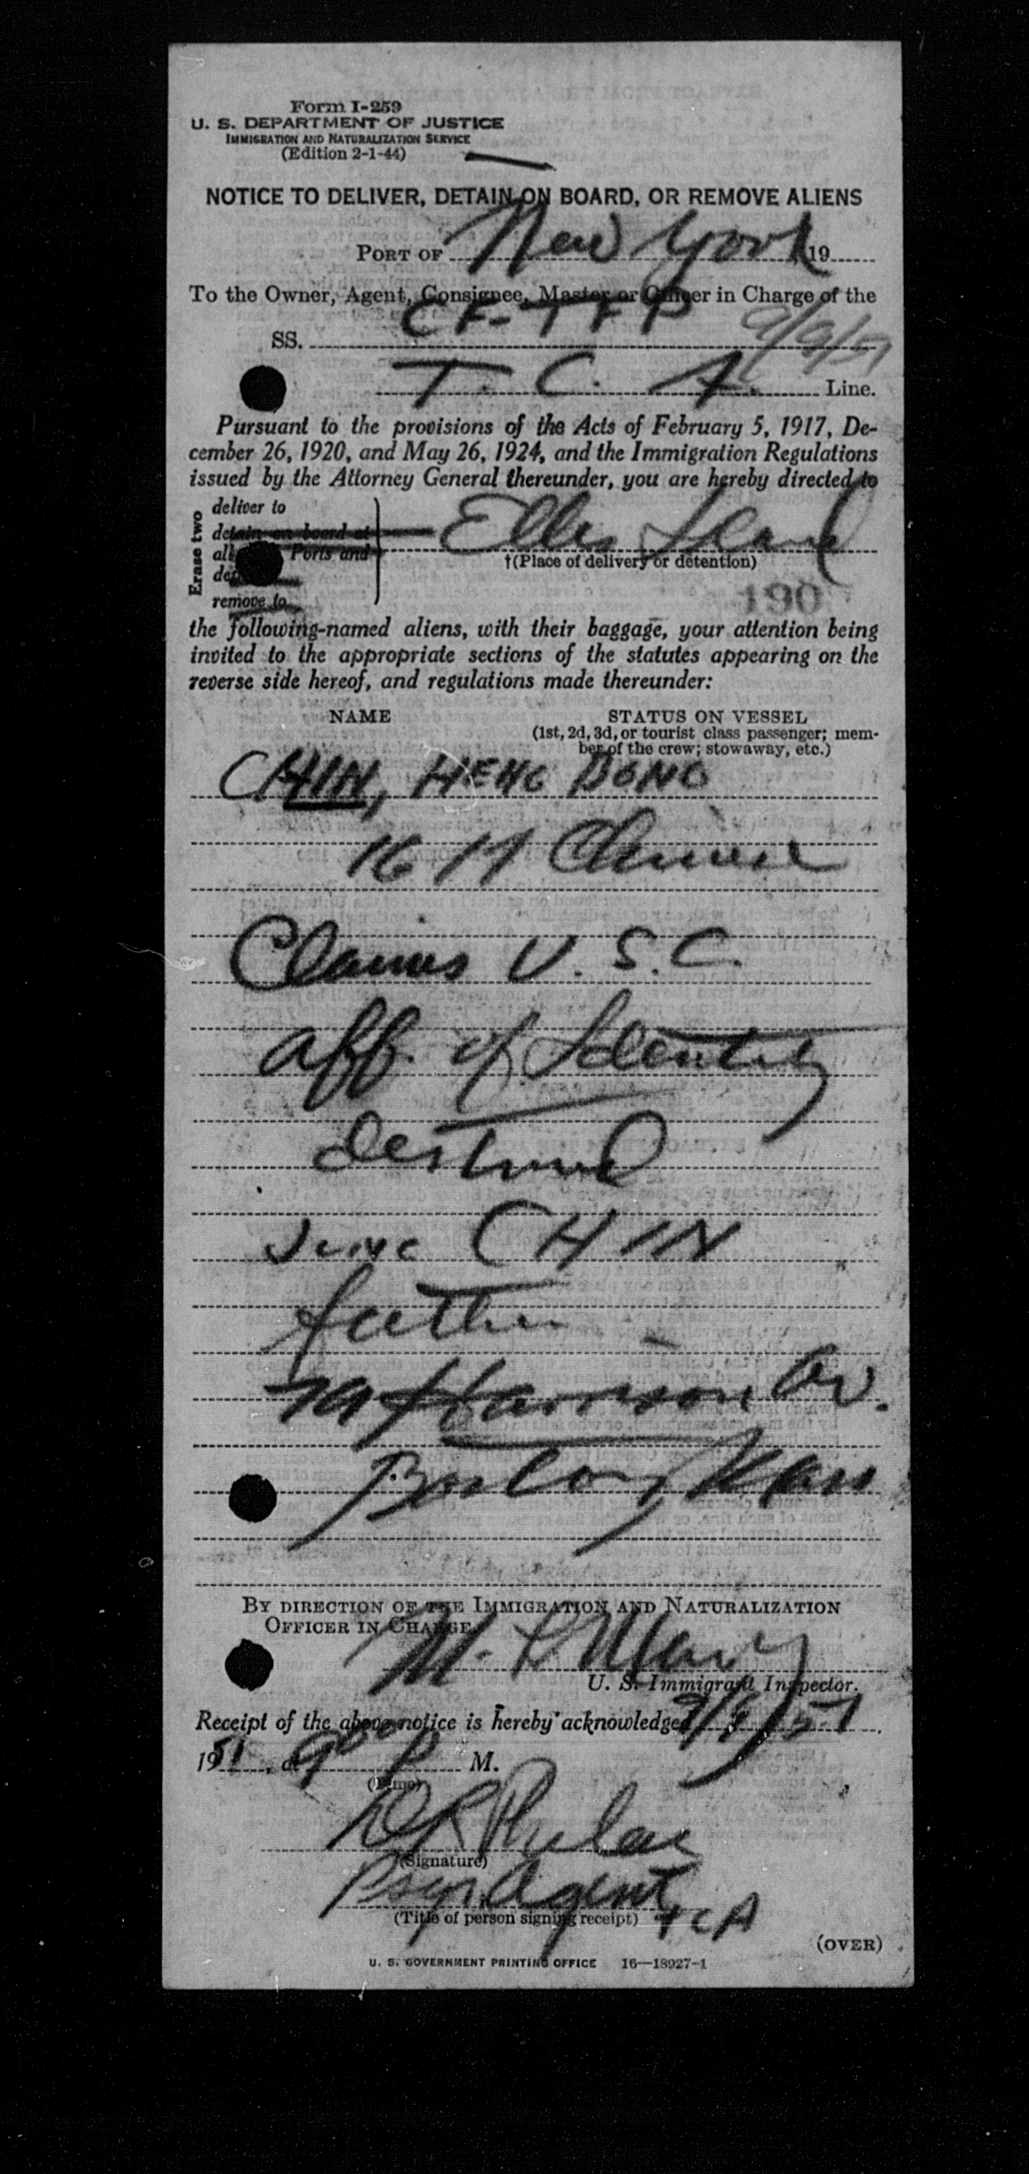 Form I-259
U. S. DEPARTMENT OF JUSTICE
IMMIGRATION AND NATURALIZATION SERVICE
(Edition 2-1-44)
NOTICE TO DELIVER, DETAIN ON BOARD, OR REMOVE ALIENS
PORT OF New York 19
To the Owner, Agent, Consignee, Master or Officer in Charge of the
SS. CF-TFP 9/9/51
T. C. A. Line.
Pursuant to the provisions of the Acts of February 5, 1917, De-
cember 26, 1920, and May 26, 1924, and the Immigration Regulations
issued by the Attorney General thereunder, you are hereby directed to
Erase two
deliver to
detain on board at
all Ports and
remove to
Ellis Island
†(Place of delivery or detention)
190
the following-named aliens, with their baggage, your attention being
invited to the appropriate sections of the statutes appearing on the
reverse side hereof, and regulations made thereunder:
NAME STATUS ON VESSEL
(1st, 2d, 3d, or tourist class passenger; mem-
ber of the crew; stowaway, etc.)
CHIN, HENG DONG
16 M Chinese
Claims U.S.C.
aff. of Identity
destined
CHIN
father
Harrison Av.
Boston, Mass
BY DIRECTION OF THE IMMIGRATION AND NATURALIZATION
OFFICER IN CHARGE.
U. S. Immigrant Inspector.
Receipt of the above notice is hereby acknowledged 9/9/51
1951, at 9 00 P M.
(Time)
(Signature)
Psgr. Agent TCA
(Title of person signing receipt)
(OVER)
U. S. GOVERNMENT PRINTING OFFICE 16—18927-1